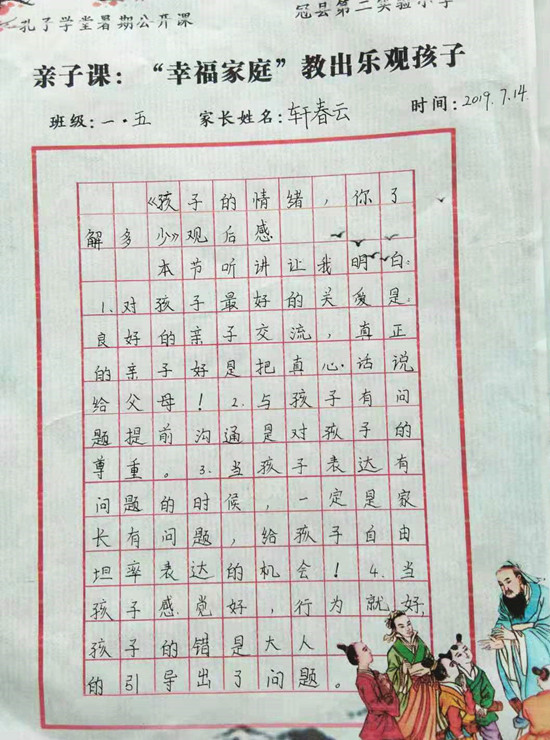 孔子学堂暑期公开课
冠县第二实验小学
亲子课：“幸福家庭”教出乐观孩子
班级：一·五 家长姓名：轩春云 时间：2019.7.14
《孩子的情绪，你了
解多少》观后感
本节听讲让我明白：
1.对孩子最好的关爱是：
良好的亲子交流，真正
的亲子好是把真心话说
给父母！2.与孩子有问
题提前沟通是对孩子的
尊重。3.当孩子表达有
问题的时候，一定是家
长有问题，给孩子自由
坦率表达的机会！4.当
孩子感觉好，行为就好，
孩子的错是大人
的引导出了问题。